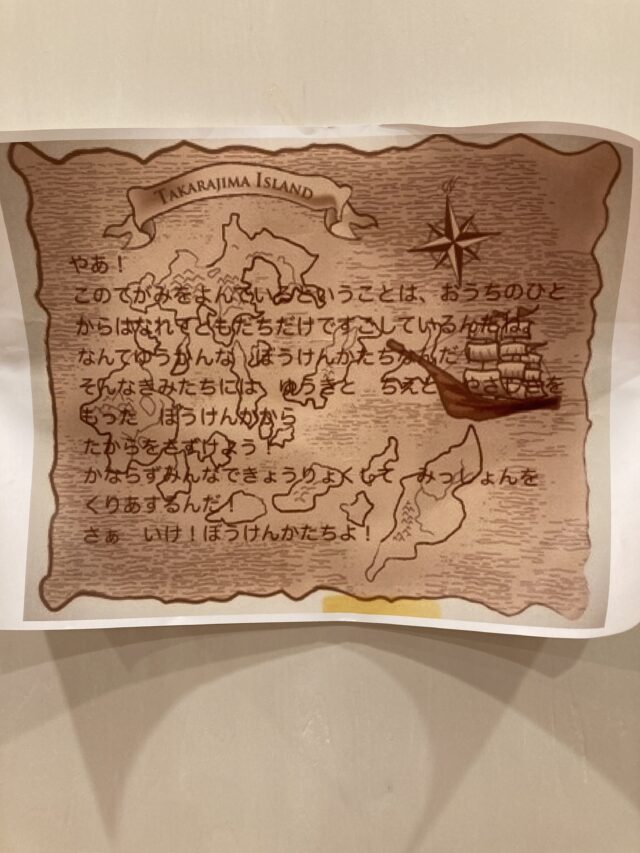 TAKARAJIMA ISLAND
やあ！
このてがみをよんでいるということは、おうちのひと
からはなれてともだちだけですごしているんだね。
なんてゆうかんな　ぼうけんかたちなんだ
そんなきみたちには、ゆうきと　ちえと　やさしさを
もった　ぼうけんかから
たからをさずけよう！
かならずみんなできょうりょくして　みっしょんを
くりあするんだ！
さぁ　いけ！ぼうけんかたちよ！